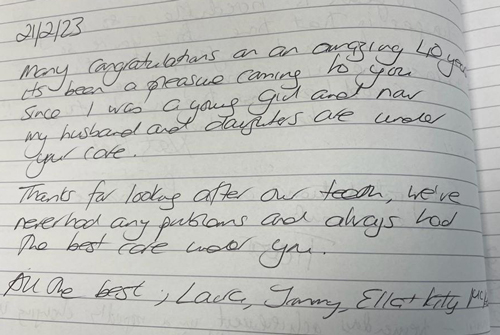 21/2/23
Many congratulations on an amazing 40 years
it's been a pleasure coming to you
since I was a young girl and now
my husband and daughters are under
your care.
Thanks for looking after our teeth, we've
never had any problems and always had
the best care under you.
All the best, Laura, Jimmy, Ella + Kitty